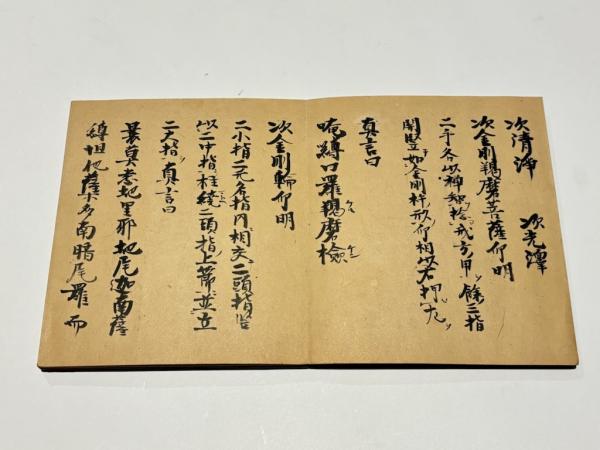 次清浄　次光澤
次金剛羯磨菩薩印明
二手各以禅智捻戒方甲餘三指
開竪如金剛杵形仰相以右押左
真言曰
唵縛日羅羯磨檢
次金剛輪印明
二小指二无名指内相交二頭指竪
以二中指纏二頭指上節並立
二大指真言曰
曩莫悉怛里耶地尾迦南薩
縛怛他蘗多南暗尾羅而